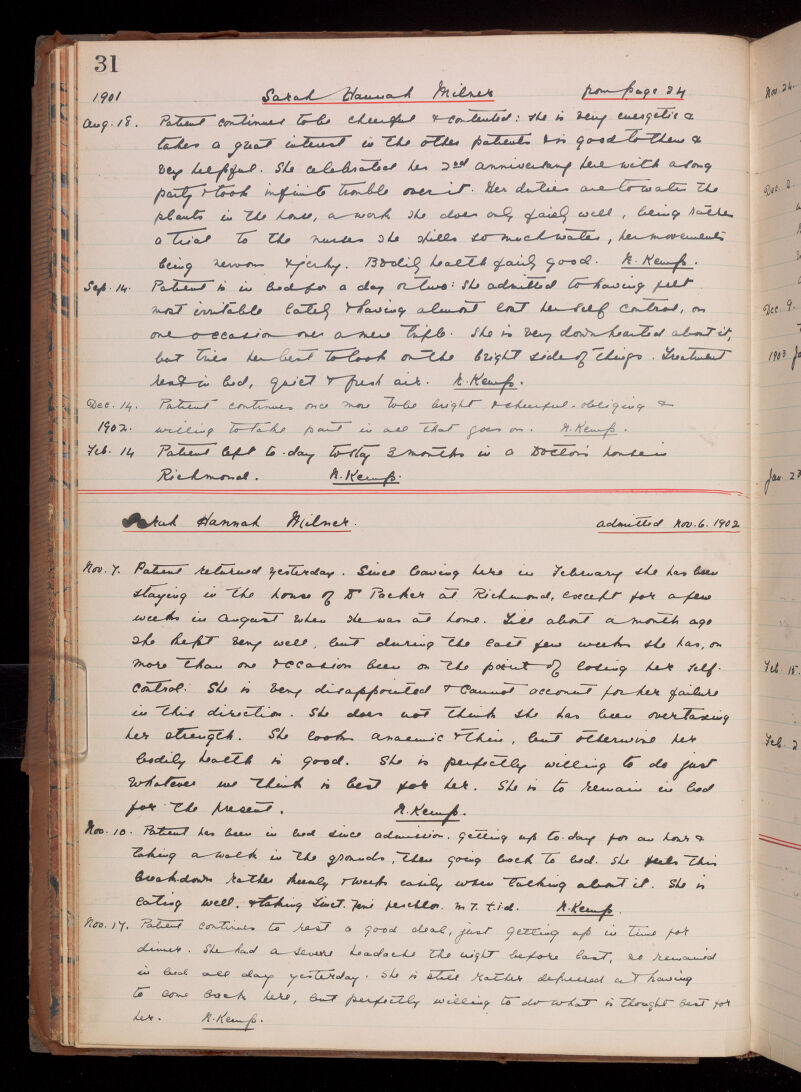 31
1901 Sarah Hannah Milner from page 24
Aug. 18. Patient continues to be cheerful & contented: she is very energetic &
takes a great interest in the other patients & is good to them &
very helpful. She celebrated her 2nd anniversary here with a song
party & took infinite trouble over it. Her duties are to water the
plants in the house, a work she does only fairly well, being rather
a trial to the nurses she spills so much water, her movements
being nervous & jerky. Bodily health fairly good. N. Kemp.
Sep. 14. Patient is in bed for a day or two: she admitted to having felt
most irritable lately & having almost lost her self control, on
one occasion over a mere trifle. She is very down hearted about it,
but tries her best to look on the bright side of things. Treatment
rest in bed, quiet & fresh air. N. Kemp.
Dec. 14. Patient continues once more to be bright & cheerful - obliging &
1902. willing to take part in all that goes on. N. Kemp.
Feb. 14 Patient left to-day to stay 3 months in a Doctor's house in
Richmond. N. Kemp.
Sarah Hannah Milner. admitted Nov. 6. 1902
Nov. 7. Patient returned yesterday. Since leaving here in February she has been
staying in the house of Dr at Richmond, except for a few
weeks in August when she was at home. Till about a month ago
she kept very well, but during the last few weeks she has, on
more than one occasion been on the point of losing her self-
control. She is very disappointed & cannot account for her failure
in this direction. She does not think she has been overtaxing
her strength. She looks anaemic & thin, but otherwise her
bodily health is good. She is perfectly willing to do just
whatever we think is best for her. She is to remain in bed
for the present. N. Kemp.
Nov. 10. Patient has been in bed since admission. getting up to-day for an hour &
taking a walk in the grounds, then going back to bed. She feels this
breakdown rather keenly & weeps easily when talking about it. She is
eating well, & taking Tinct. Ferri perchlor. m 7. t.i.d. N. Kemp.
Nov. 17. Patient continues to rest a good deal, just getting up in time for
dinner. She had a severe headache the night before last, so remained
in bed all day yesterday. She is still rather depressed at having
to come back here, but perfectly willing to do what is thought best for
her. N. Kemp.
Nov. 24.
Dec. 2.
Dec. 9.
1903
Jan. 23
Feb. 15.
Feb. 2